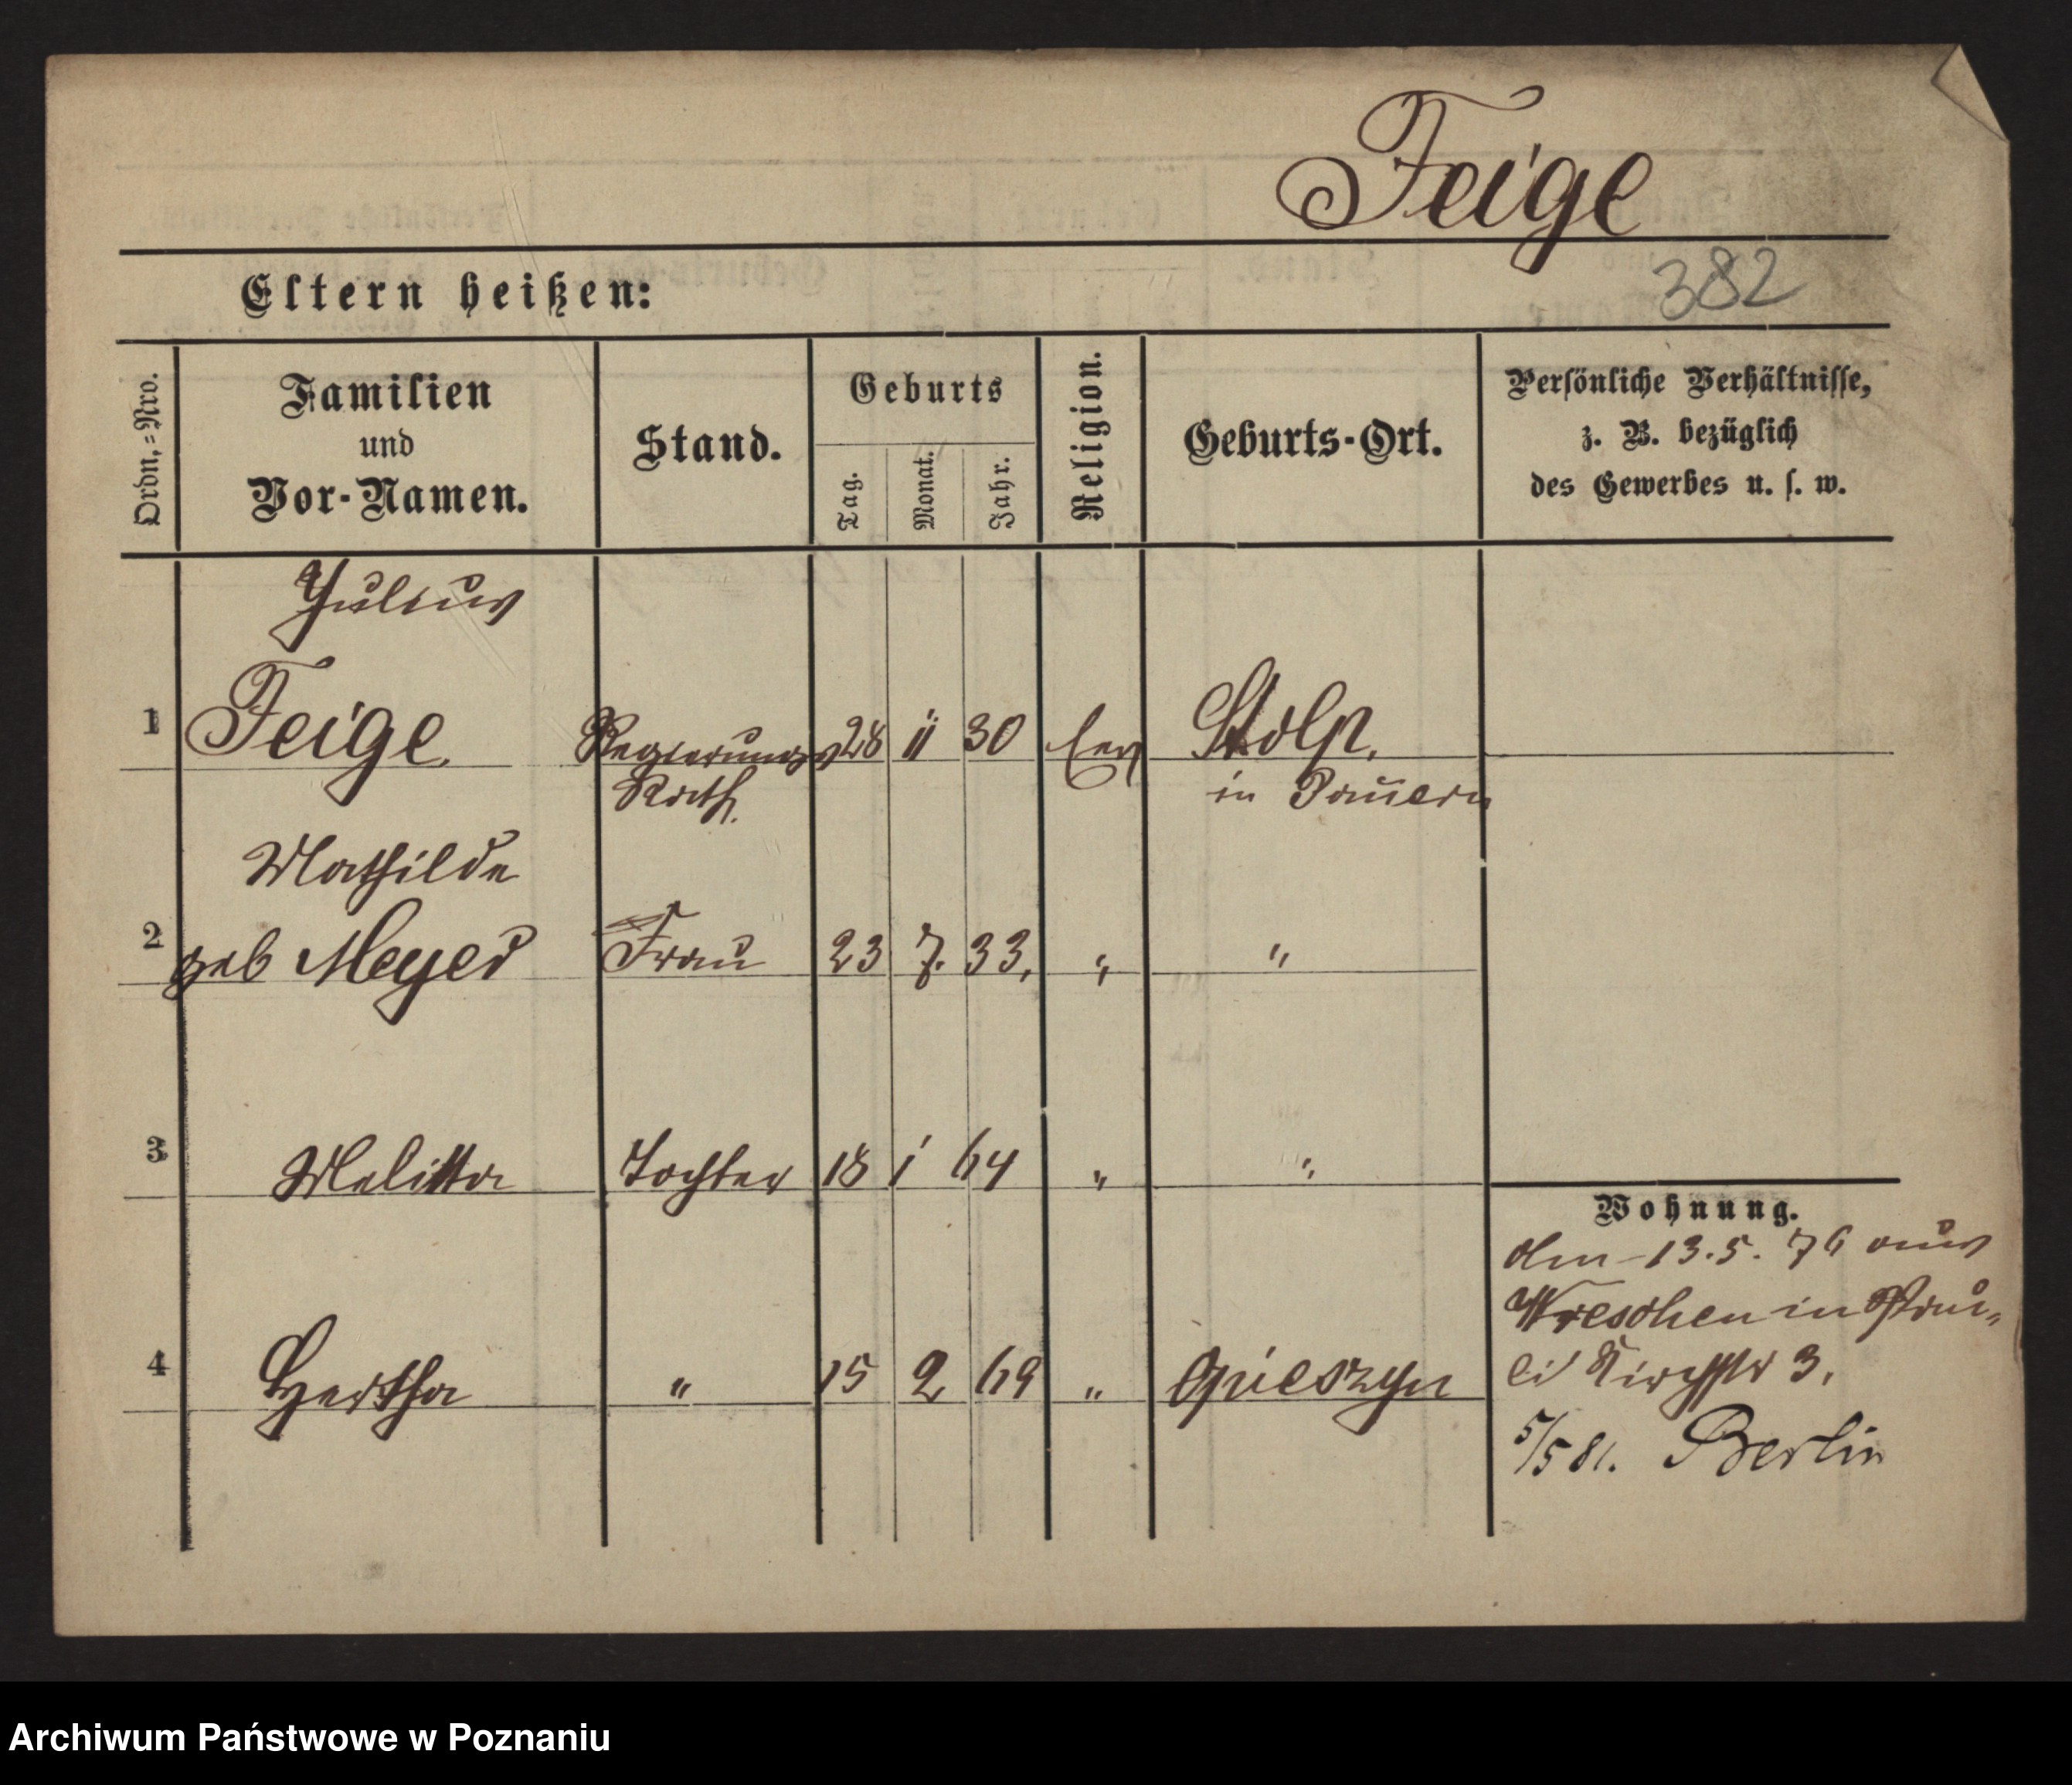 Feige
382
Eltern heißen:
Ordn.=Nro.
Familien
und
Vor-Namen.
Stand.
Geburts
Tag.
Monat.
Jahr.
Religion.
Geburts-Ort.
Persönliche Verhältnisse,
z. B. bezüglich
des Gewerbes u. s. w.
Julius
1 Feige. Regierungs 28 11 30 Ev Stolp.
Rath. in Pom̄ern
Mathilde
2 geb Meyer Frau 23 7. 33. " "
3 Melitta Tochter 18 1 64 " "
4 Hertha " 15 2 69 "
Wohnung.
13.5. 76 aus
Wreschen in
Kirchstr 3.
5/5 81. Berlin
Archiwum Państwowe w Poznaniu